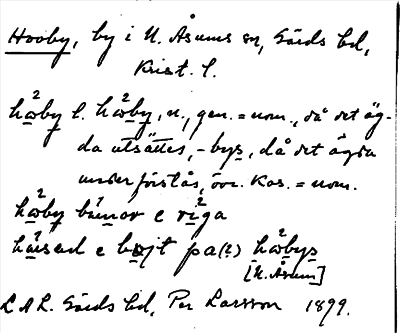 Hooby, by i N. Åsums sn, Gärds hd,
Krist. l.
hωby l. hωby, n., gen. = nom., då det äg-
da utsättes, -bys, då det ägda
underförstås, övr. kas. = nom.
hωby bönor e riga
e bojt pa(2) hωbys
[N. Åsum]
LAL. Gärds hd, Per Larsson 1899.